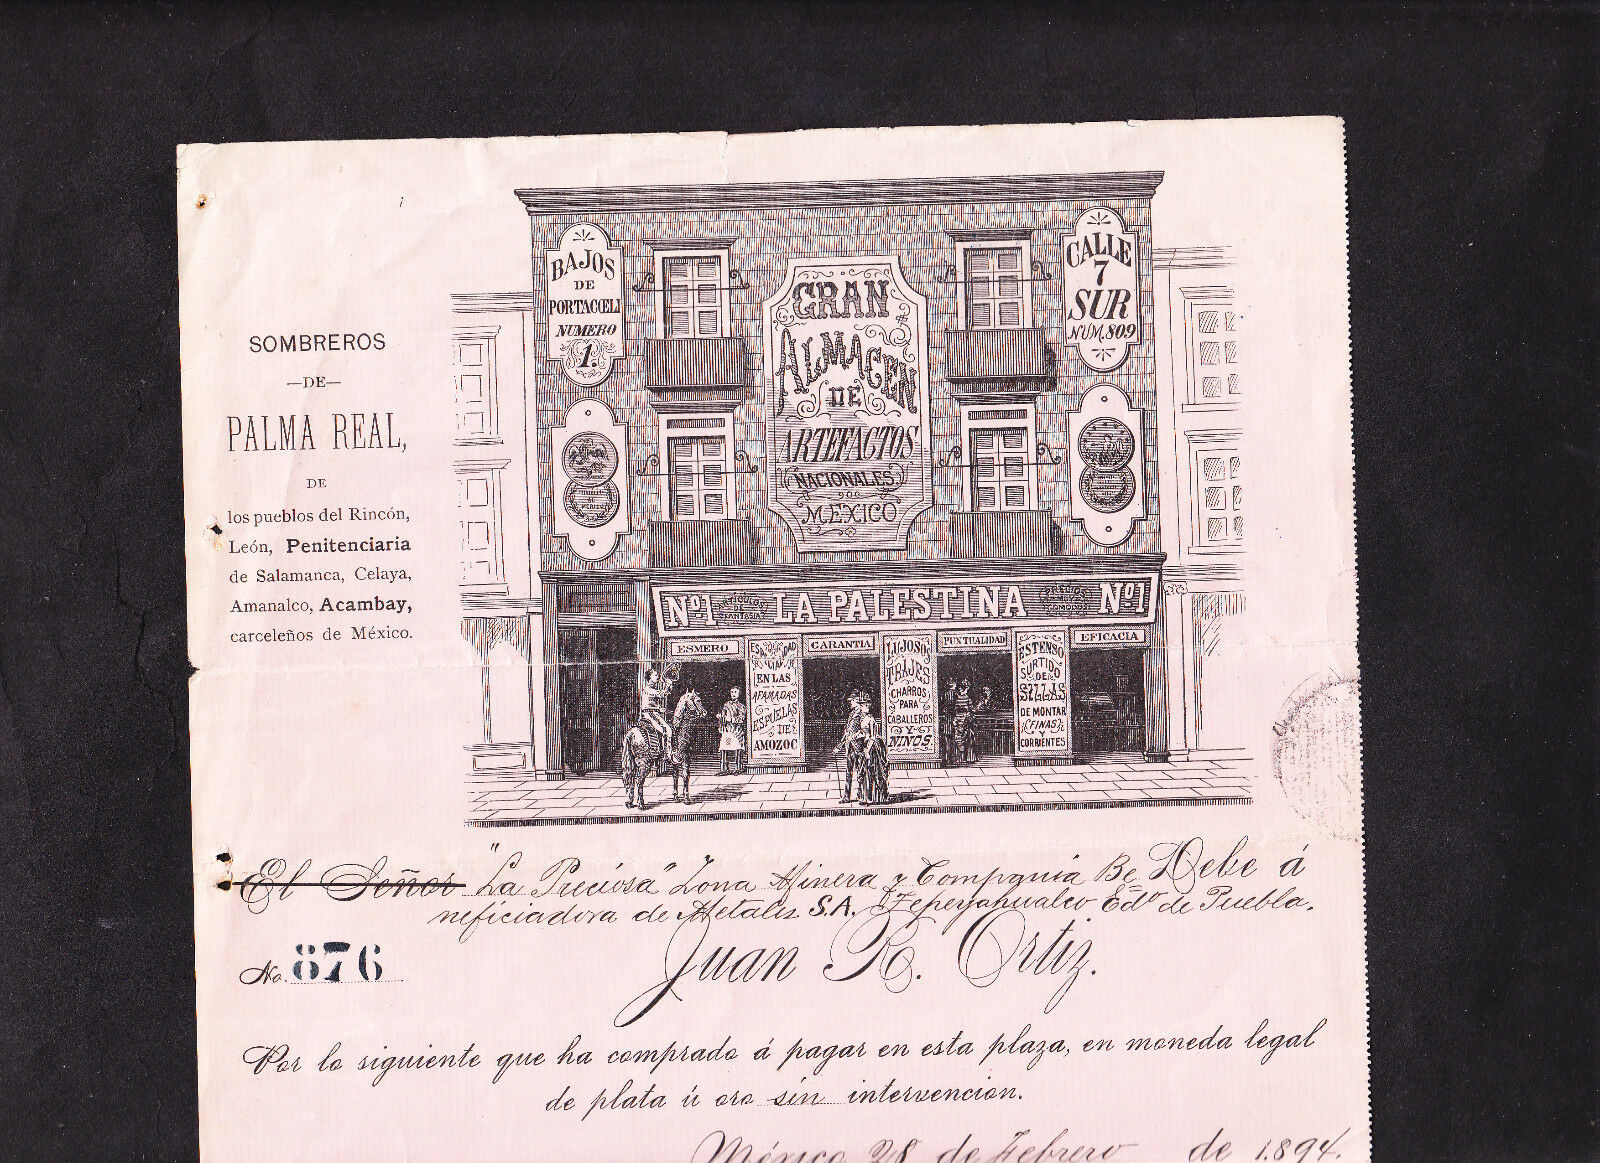 SOMBREROS
—DE—
PALMA REAL,
DE
los pueblos del Rincón,
León, Penitenciaria
de Salamanca, Celaya,
Amanalco, Acambay,
carceleños de México.
BAJOS
DE
PORTACŒLI
NUMERO
1.
GRAN
ALMACEN
DE
ARTEFACTOS
NACIONALES
MEXICO
CALLE
7
SUR
NUM. 809
Nº 1 ARTICULOS DE FANTASIA LA PALESTINA PRECIOS COMODOS Nº 1
ESMERO
ESPECIALIDAD
EN LAS
AFAMADAS
ESPUELAS
DE
AMOZOC
GARANTIA
LUJOSOS
TRAJES
CHARROS
PARA
CABALLEROS
Y
NIÑOS
PUNTUALIDAD
ESTENSO
SURTIDO
DE
SILLAS
DE MONTAR
FINAS
Y
CORRIENTES
EFICACIA
El Señor "La Preciosa" Zona Minera y Compañia Be Debe á
neficiadora de Metales. S.A. Tzepeyahualco Edº de Puebla.
No. 876
Juan R. Ortiz.
Por lo siguiente que ha comprado á pagar en esta plaza, en moneda legal
de plata ú oro sin intervencion.
México 28 de Febrero de 1894.